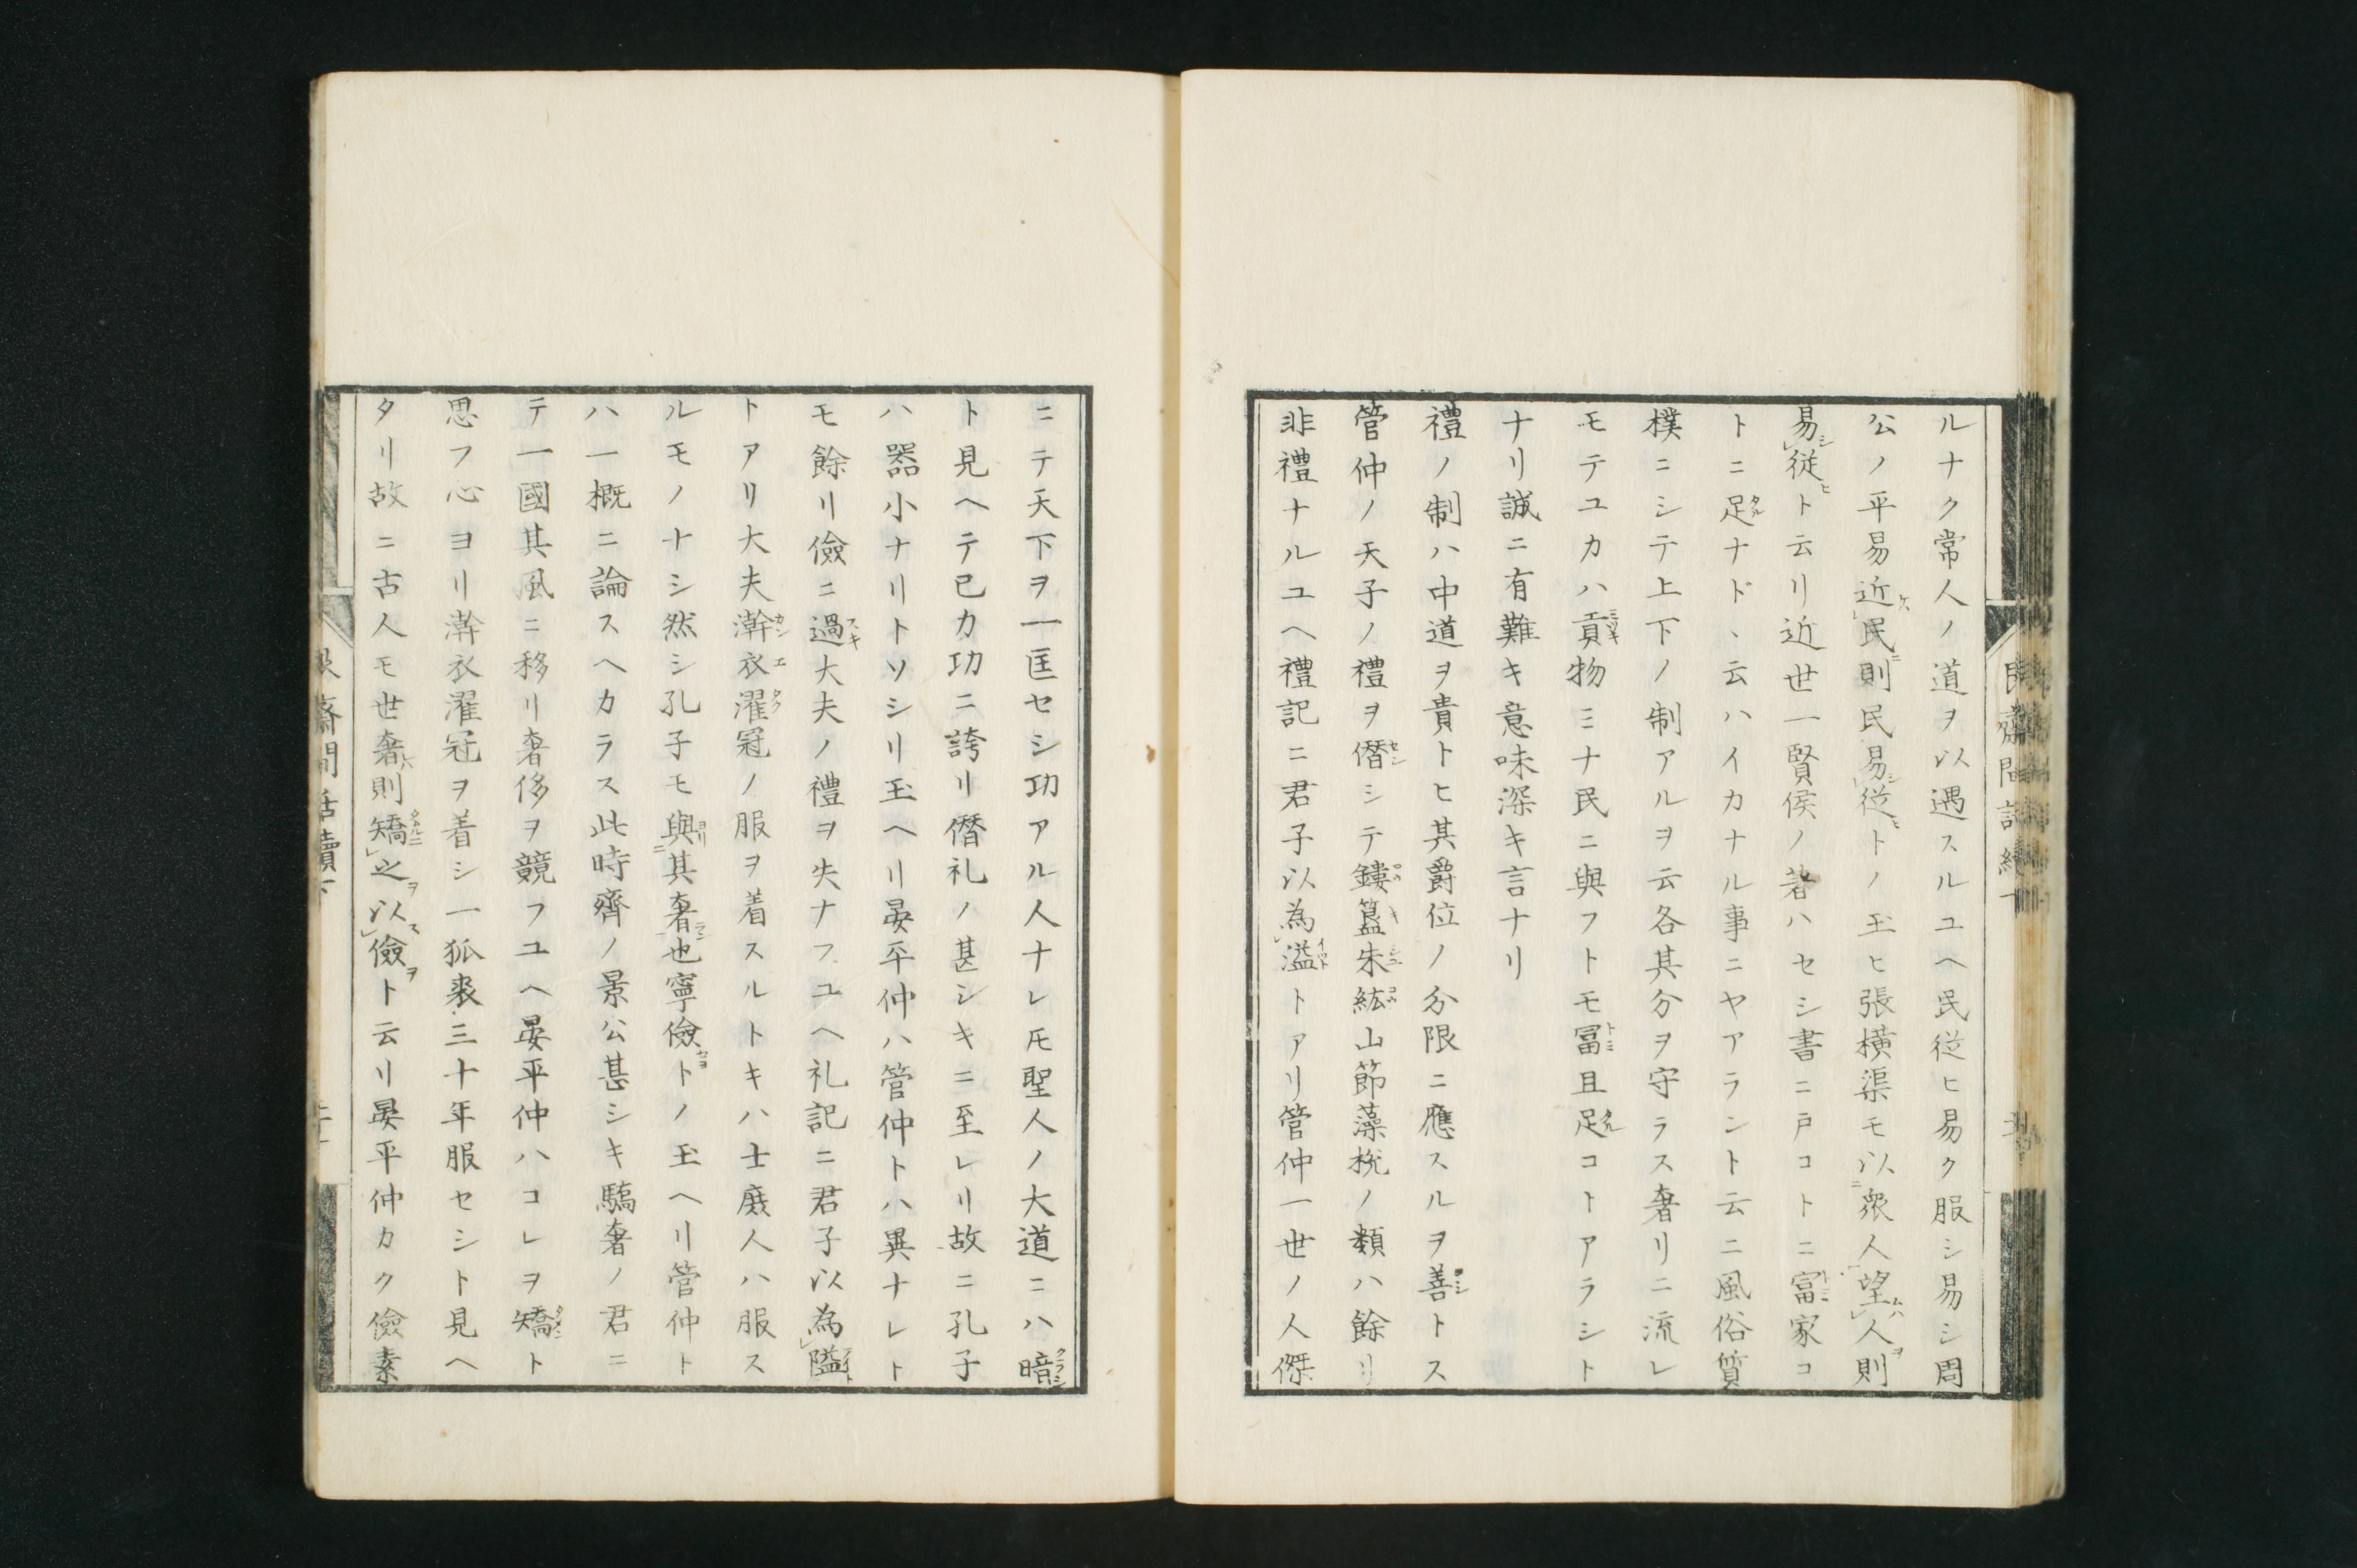 ルナク常人ノ道ヲ以遇スルユヘ民従ヒ易ク服シ易シ周
公ノ平易近民則民易従トノ玉ヒ張横渠モ以衆人望人則
易従ト云リ近世一賢侯ノ著ハセシ書ニ戸コトニ富家コ
トニ足ナド、云ハイカナル事ニヤアラント云ニ風俗質
樸ニシテ上下ノ制アルヲ云各其分ヲ守ラス奢リニ流レ
モテユカハ貢物ミナ民ニ與フトモ冨且足コトアラシト
ナリ誠ニ有難キ意味深キ言ナリ
禮ノ制ハ中道ヲ貴トヒ其爵位ノ分限ニ應スルヲ善トス
管仲ノ天子ノ禮ヲ僭シテ鏤簋朱紘山節藻梲ノ類ハ餘リ
非禮ナルユヘ禮記ニ君子以為溢トアリ管仲一世ノ人傑
ニテ天下ヲ一匡セシ功アル人ナレ𪜈聖人ノ大道ニハ暗
ト見ヘテ已カ功ニ誇リ僭礼ノ甚シキニ至レリ故ニ孔子
ハ器小ナリトソシリ玉ヘリ晏平仲ハ管仲トハ異ナレト
モ餘リ儉ニ過大夫ノ禮ヲ失ナフユヘ礼記ニ君子以為隘
トアリ大夫澣衣濯冠ノ服ヲ着スルトキハ士庶人ハ服ス
ルモノナシ然シ孔子モ與其奢也寧儉トノ玉ヘリ管仲ト
ハ一概ニ論スヘカラス此時齊ノ景公甚シキ驕奢ノ君ニ
テ一國其風ニ移リ奢侈ヲ競フユヘ晏平仲ハコレヲ矯ト
思フ心ヨリ澣衣濯冠ヲ着シ一狐裘三十年服セシト見ヘ
タリ故ニ古人モ世奢則矯之以儉ト云リ晏平仲カク儉素